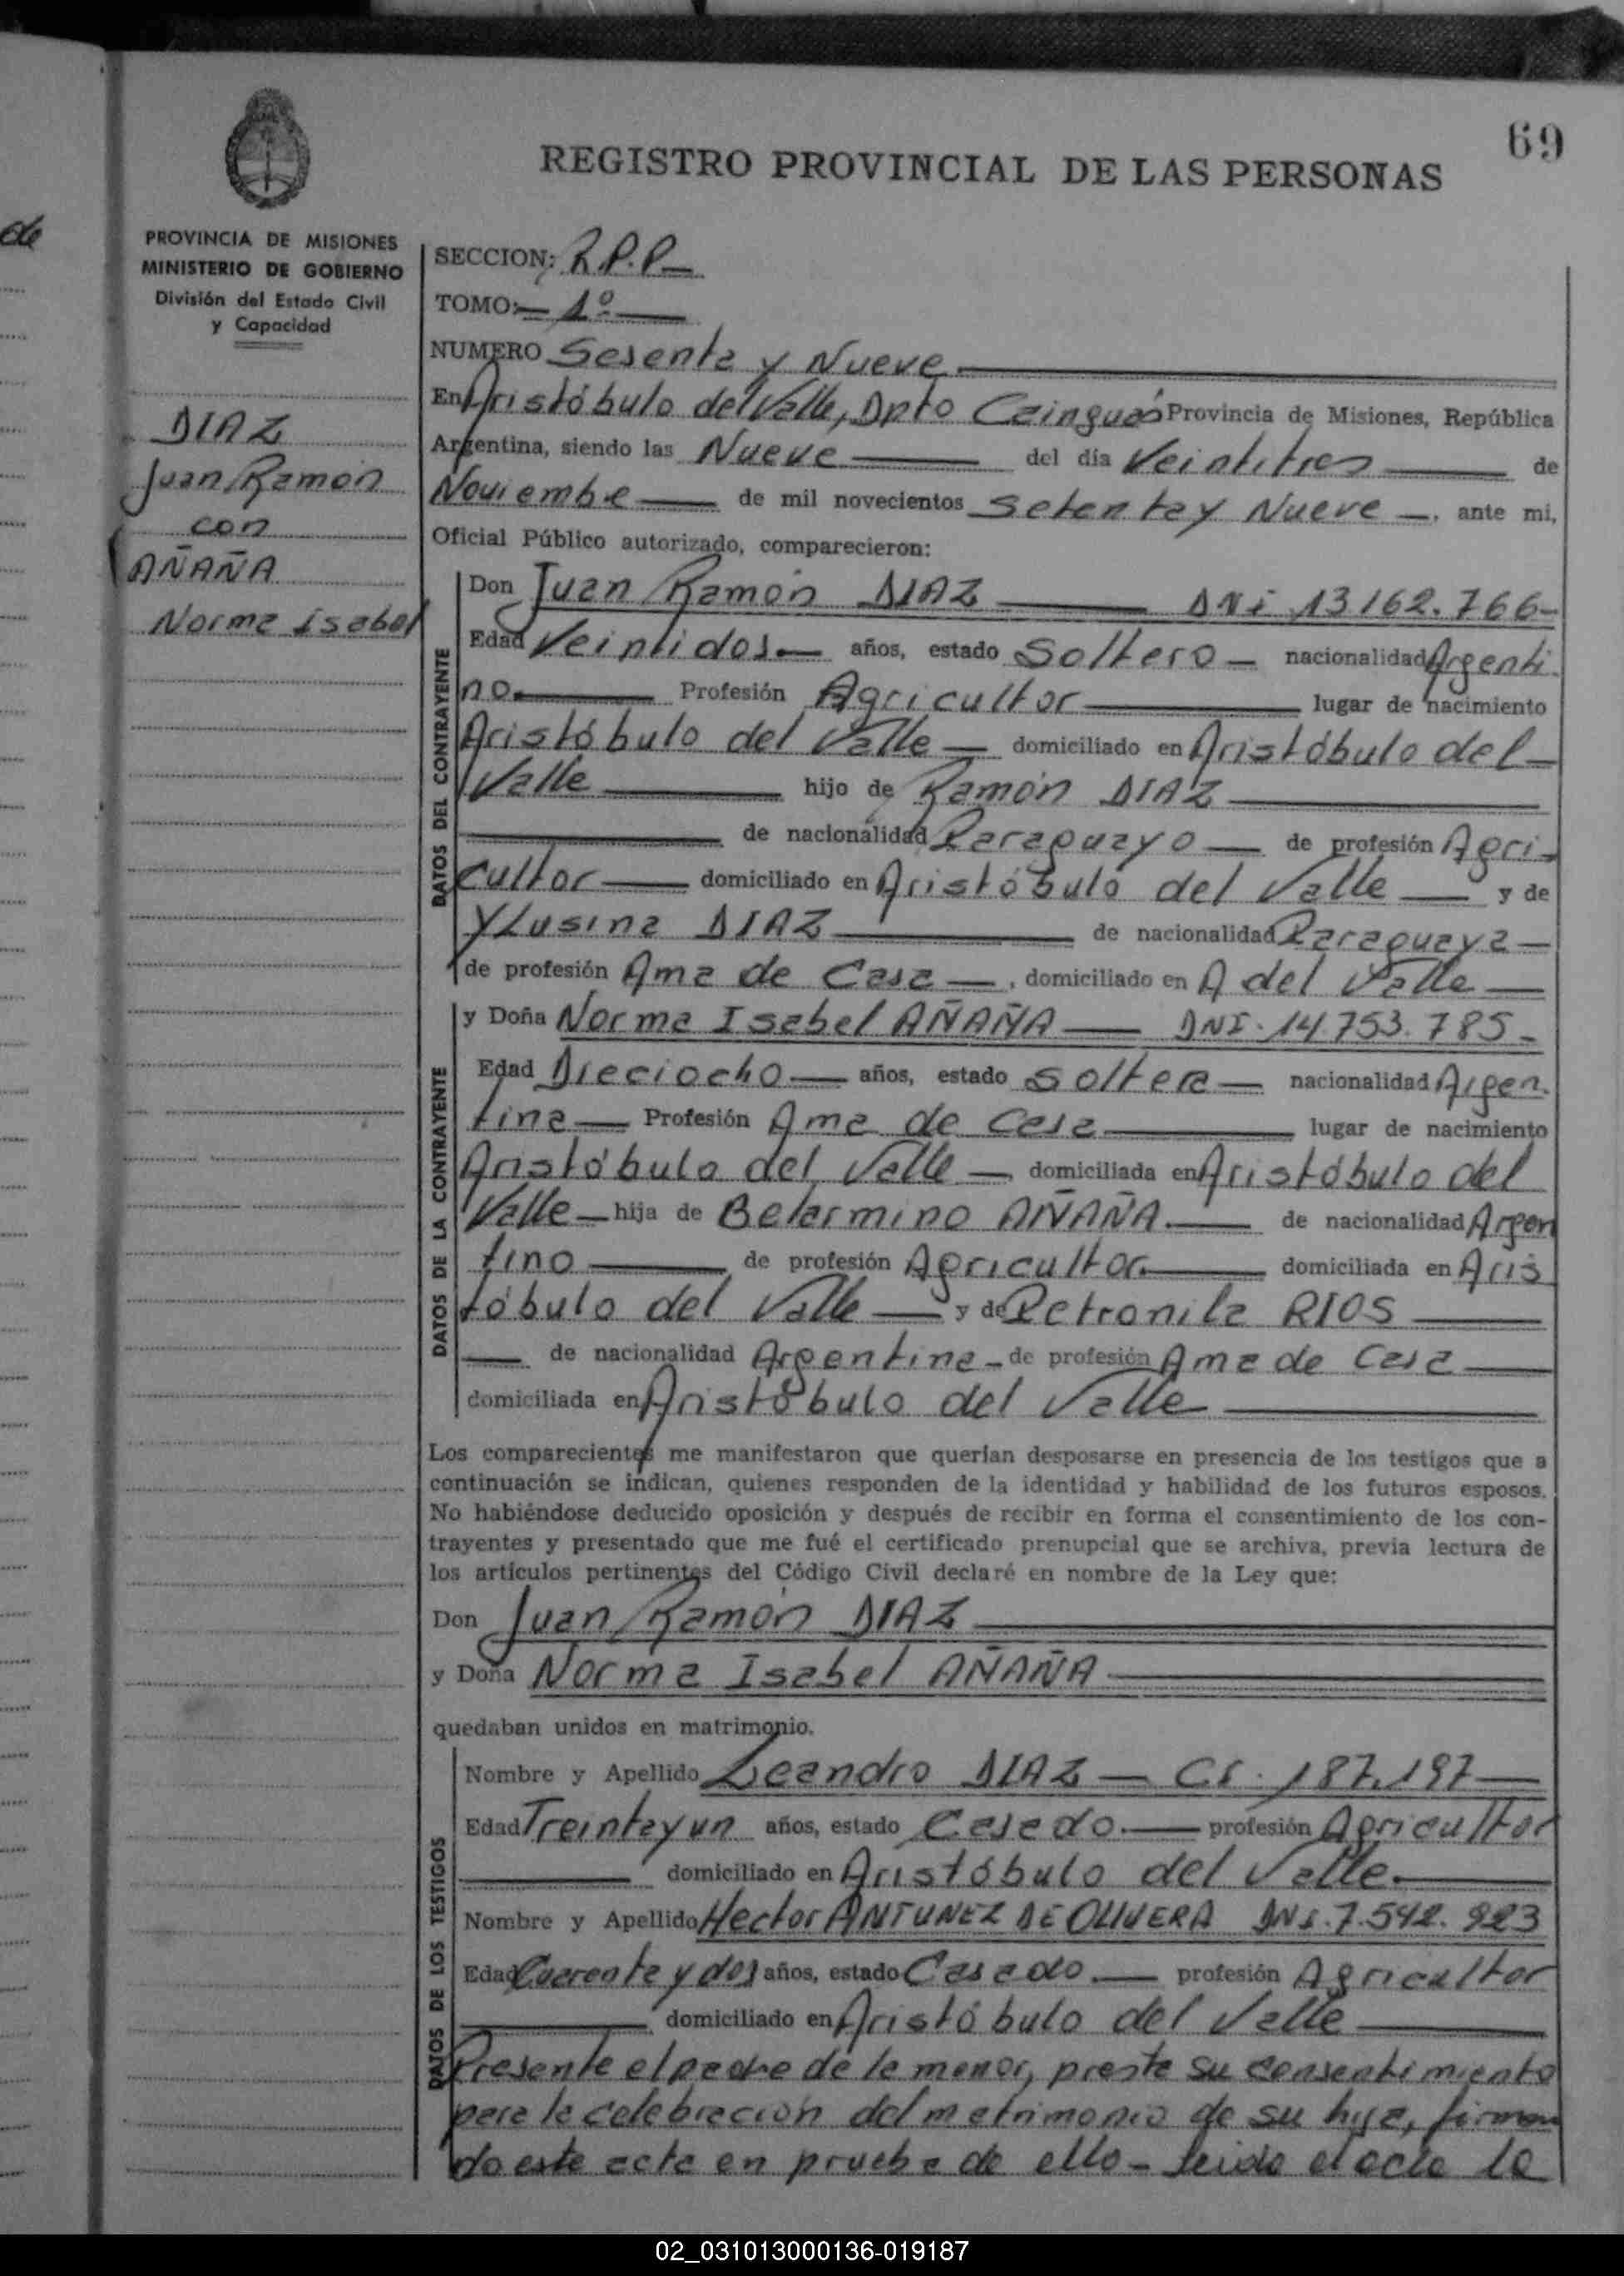 69
REGISTRO PROVINCIAL DE LAS PERSONAS
de
PROVINCIA DE MISIONES
MINISTERIO DE GOBIERNO
División del Estado Civil
y Capacidad
DIAZ
Juan Ramón
con
AÑAÑA
Norma isabel
SECCION: R.P.P
TOMO: 1º
NUMERO Sesenta y Nueve
En Aristóbulo del Valle, Dpto Cainguás Provincia de Misiones, República
Argentina, siendo las Nueve del día Veintitres de
Noviembre de mil novecientos Setenta y Nueve, ante mi,
Oficial Público autorizado, comparecieron:
DATOS DEL CONTRAYENTE
Don Juan Ramón DIAZ DNi 13162.766-
Edad Veintidos años, estado Soltero nacionalidad Argenti
no Profesión Agricultor lugar de nacimiento
Aristóbulo del Valle domiciliado en Aristóbulo del
Valle hijo de Ramón DIAZ
de nacionalidad Paraguayo de profesión Agri-
cultor domiciliado en Aristóbulo del Valle y de
YLusina DIAZ de nacionalidad Paraguaya
de profesión Ama de Casa, domiciliado en A del Valle
DATOS DE LA CONTRAYENTE
y Doña Norma Isabel AÑAÑA DNI. 14.753.785-
Edad Dieciocho años, estado soltera nacionalidad Argen.
tina Profesión Ama de Casa lugar de nacimiento
Aristóbulo del Valle domiciliada en Aristóbulo del
Valle hija de Belarmino AÑAÑA de nacionalidad Argen
tino de profesión Agricultor domiciliada en Aris
tóbulo del Valle y de Petronila RIOS
de nacionalidad Argentina de profesión Ama de Casa
domiciliada en Aristóbulo del Valle
Los comparecientes me manifestaron que querían desposarse en presencia de los testigos que a
continuación se indican, quienes responden de la identidad y habilidad de los futuros esposos.
No habiéndose deducido oposición y después de recibir en forma el consentimiento de los con-
trayentes y presentado que me fué el certificado prenupcial que se archiva, previa lectura de
los artículos pertinentes del Código Civil declaré en nombre de la Ley que:
Don Juan Ramón DIAZ
y Doña Norma Isabel AÑAÑA
quedaban unidos en matrimonio.
DATOS DE LOS TESTIGOS
Nombre y Apellido Leandro DIAZ - CI. 187.197
Edad Treinta y un años, estado Casado profesión Agricultor
domiciliado en Aristóbulo del Valle
Nombre y Apellido Hector ANTUNEZ DE OLIVERA DNi. 7.542.923
Edad Cuarenta y dos años, estado Casado profesión Agricultor
domiciliado en Aristóbulo del Valle
Presente el padre de la menor, presta su consentimiento
para la celebración del matrimonio de su hija, firman
do este acta en prueba de ello - Leida el acta la
02_031013000136-019187